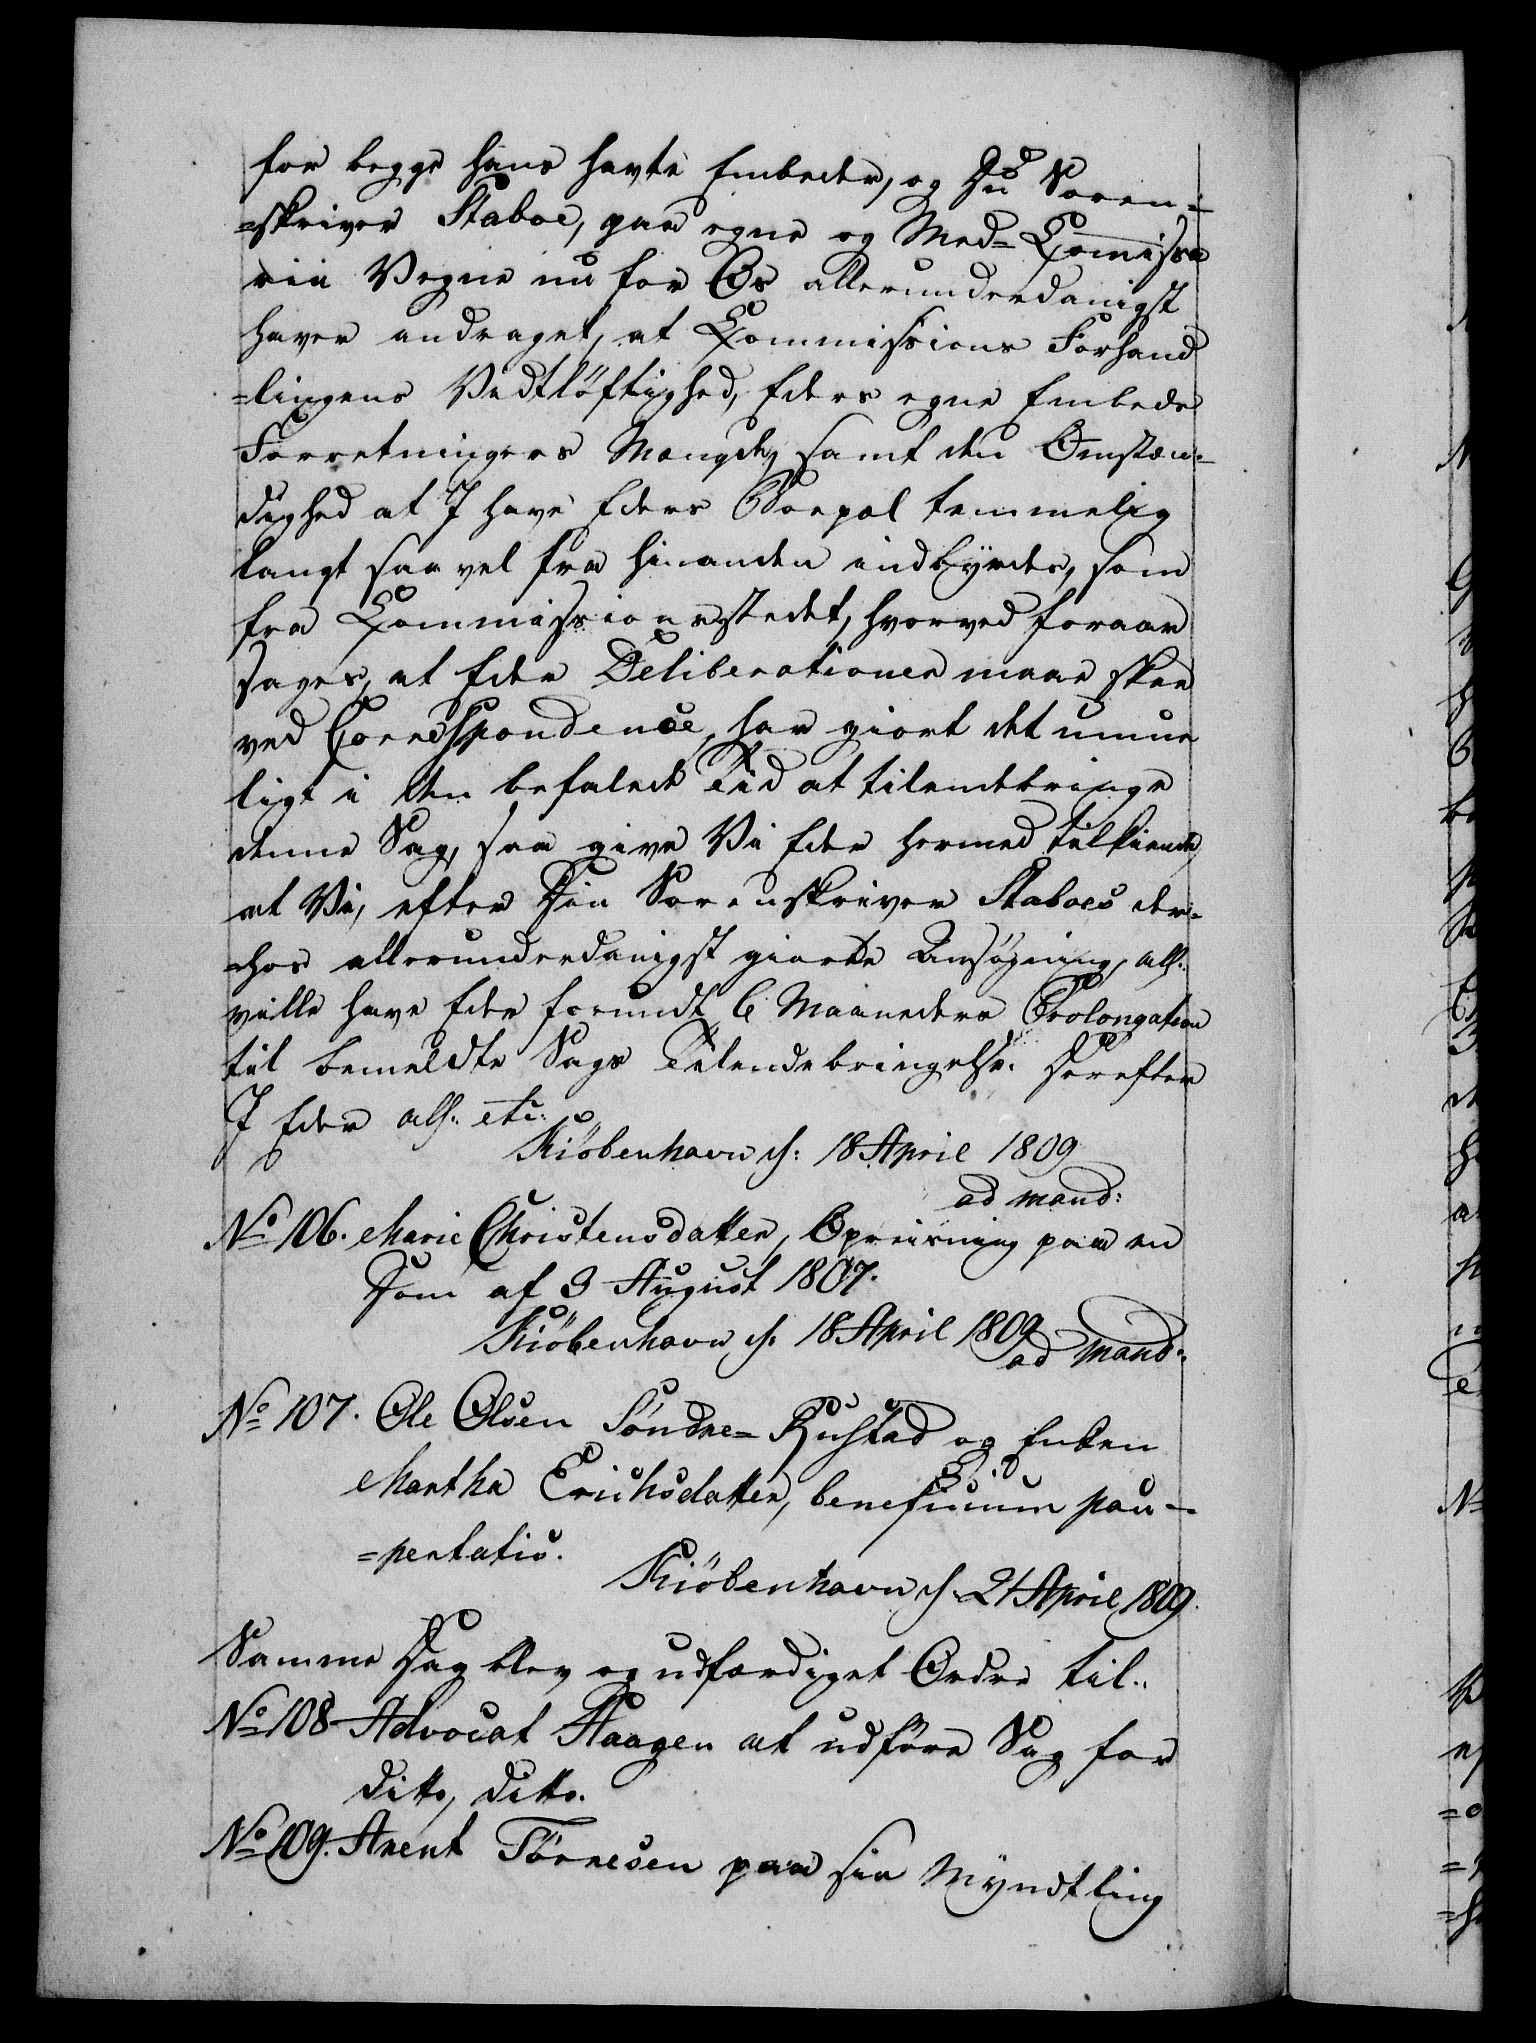 for begge hans havte Embeder, og Du Soren-
=skriver Staboe, paa egne og Med=Commissa
rii Vegne nu for Os allerunderdanigst
haver andraget, at Kommissions Forhand
=lingens Vidtløftighed, Eders egne Embeds
Forretningers Mængde, samt den Omstæn-
dighed at I have Eders Boepæl temmelig
langt saavel fra hinanden indbyrdes, som
fra Kommissionsstedet, hvorved foraar
sages, at Eders Deliberationer maae skee
ved Correspondence, har giort det umue
ligt i den befalede Tid at tilendebringe
denne Sag, saa give Vi Eder hermed tilkiende,
at Vi, efter Din Sorenskriver Staboes der-
=hos allerunderdanigst giorte Ansøgning, all:
ville have Eder forundt 6 Maaneders Prolongation
til bemeldte Sags Tilendebringelse. Derefter
I Eder all: etc:
Kiöbenhavn d: 18 April 1809
ad mand:
No 106. Marie Christensdatter, Opreisning paa en
Dom af 3 August 1807.
Kiöbenhavn d: 18 April 1809
ad mand:
No 107. Ole Olsen Söndre=Rustad og Enken
Martha Erichsdatter, beneficium pau-
=pertatis.
Kiöbenhavn d. 21 April 1809.
Samme Dag blev og udfærdiget Ordre til:
No 108 Advocat Haagen at udføre Sag for
ditto, ditto.
No 109. Arent Törresen paa sin Myndtling